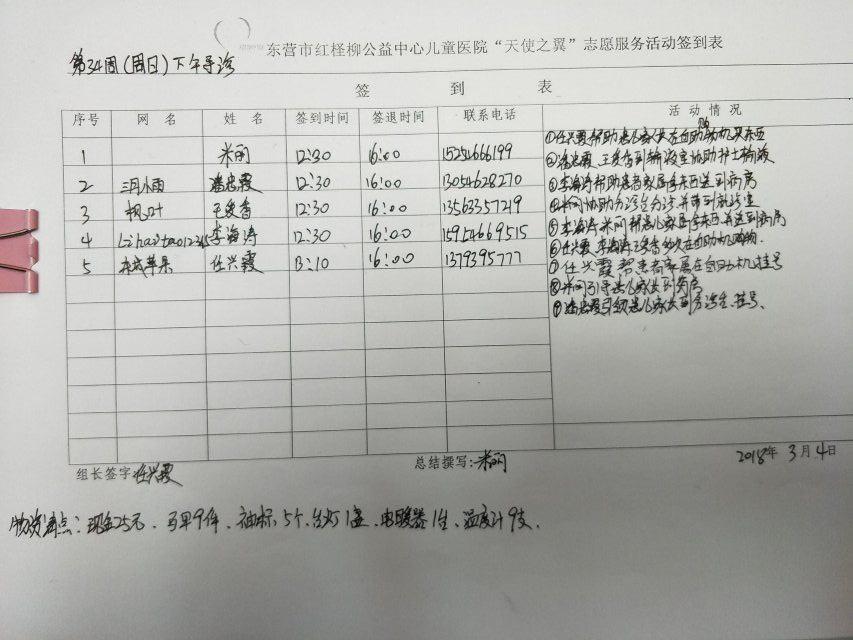 东营市红柽柳公益中心儿童医院“天使之翼”志愿服务活动签到表
第34周(周日)下午导诊
签 到 表
序号 网 名 姓 名 签到时间 签退时间 联系电话 活 动 情 况
1 米丽 12:30 16:00 15254666199
2 三月小雨 潘忠霞 12:30 16:00 13054628270
3 枫叶 王爱香 12:30 16:00 13563357249
4 Lihaitao12345 李海涛 12:30 16:00 15954669515
5 苹果 任兴霞 13:10 16:00 1379395777
①任兴霞帮助患儿家长在自助机买东西
②潘忠霞、王爱香到输液室协助护士输液
③李海涛帮助患者家属拿东西送到病房
④米丽协助分诊台分诊并带到就诊室
⑤李海涛米丽帮患儿家属拿东西并送到病房
⑥任兴霞李海涛 在自助机购物.
⑦任兴霞帮患者家属在自助机挂号
⑧米丽引导患儿家长到
⑨潘忠霞引领患儿家长到分诊台、挂号、
组长签字 任兴霞 总结撰写:米丽 2018年 3月4日
物资清点:现金25元、马甲9件、袖标5个、台灯1盏、电暖器1台、温度计9支.